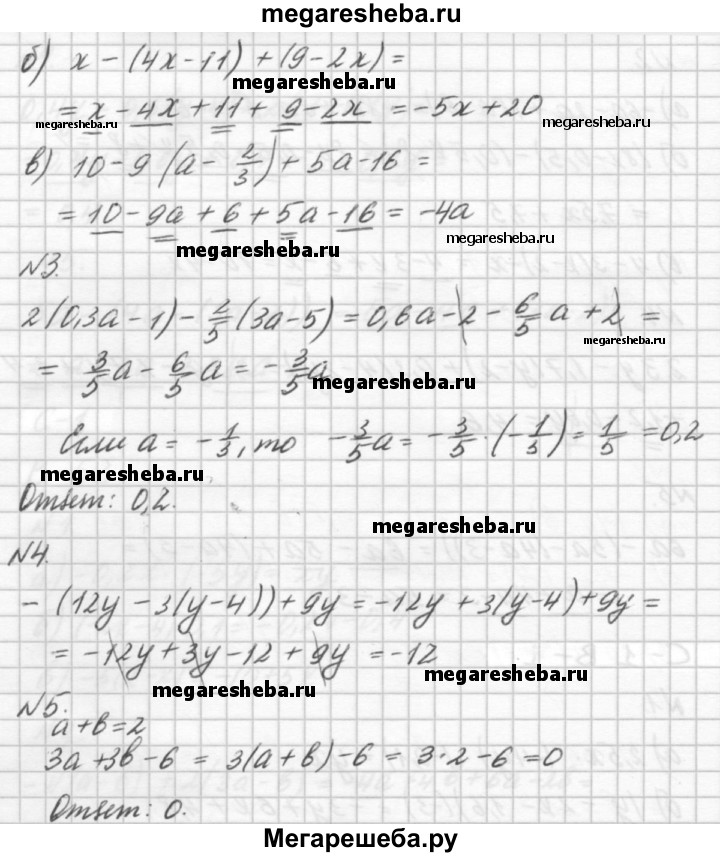 megaresheba.ru
б) x - (4x - 11) + (9 - 2x) =
megaresheba.ru
= x - 4x + 11 + 9 - 2x = -5x + 20
megaresheba.ru
megaresheba.ru
в) 10 - 9(a - 2/3) + 5a - 16 =
= 10 - 9a + 6 + 5a - 16 = -4a
megaresheba.ru
megaresheba.ru
№3.
2(0,3a - 1) - 2/5(3a - 5) = 0,6a - 2 - 6/5 a + 2 =
megaresheba.ru
= 3/5 a - 6/5 a = - 3/5 a
megaresheba.ru
Если a = - 1/3, то - 3/5 a = - 3/5 · (- 1/3) = 1/5 = 0,2
megaresheba.ru
Ответ: 0,2.
megaresheba.ru
№4.
- (12y - 3(y - 4)) + 9y = -12y + 3(y - 4) + 9y =
= -12y + 3y - 12 + 9y = -12
megaresheba.ru
megaresheba.ru
№5.
a + b = 2
3a + 3b - 6 = 3(a + b) - 6 = 3 · 2 - 6 = 0
Ответ: 0.
Мегарешеба.ру